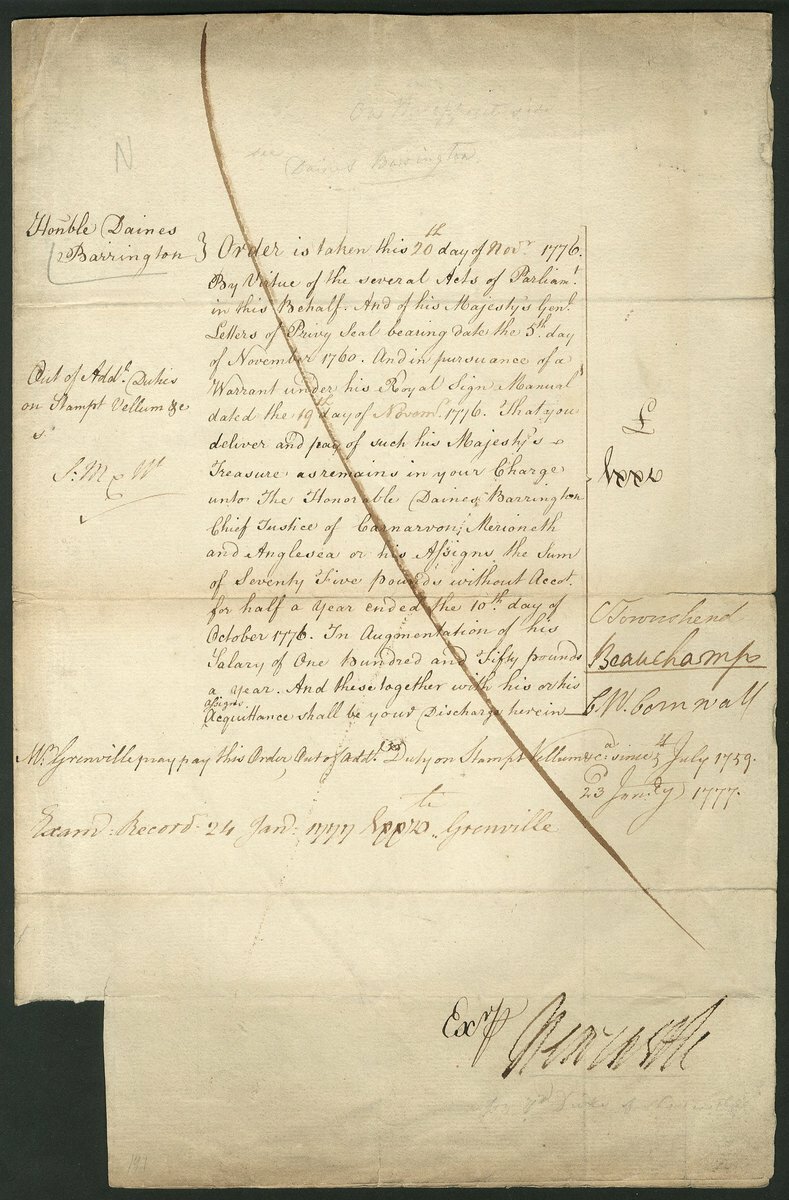 On the opposite side
see
Daines Barrington
N
Honble Daines
Barrington
Order is taken this 20th day of Novr 1776.
By Virtue of the several Acts of Parliamt
in this Behalf. And of his Majesty's Genl
Letters of Privy Seal bearing date the 5th day
of November 1760. And in pursuance of a
Warrant under his Royal Sign Manual
dated the 19th day of Novemr 1776. That you
deliver and pay of such his Majesty's
Treasure as remains in your Charge
unto The Honorable Daines Barrington
Chief Justice of Carnarvon, Merioneth
and Anglesea or his Assigns the Sum
of Seventy Five pounds without Accot.
for half a Year ended the 10th day of
October 1776. In Augmentation of his
Salary of One hundred and Fifty pounds
a Year. And these together with his or his
assigns
Acquittance shall be your Discharge herein
Out of Addl. Duties
on Stampt Vellum &c
£
lxxv
C Townshend
Beauchamp
C. W. Cornwall
Mr Grenville pray pay this Order Out of Addl. Duty on Stampt Vellum &ca since 5th July 1759.
23d Janry 1777.
Examd Record 24 Jan: 1777 lxxv Grenville
Exr
Newcastle
197